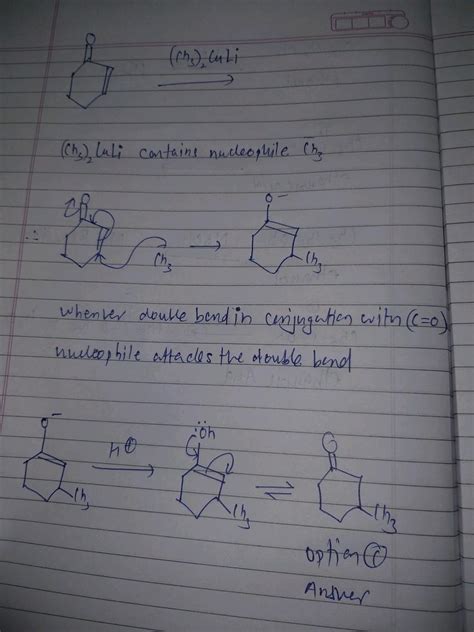 O
(CH3)2CuLi
(CH3)2CuLi contains nucleophile C̄H3
O
∴
CH3
O⁻
CH3
whenver double bond in conjugation with (C=O)
nucleophile attacks the double bond
O⁻
H⊕
:ÖH
O
CH3
CH3
CH3
option C
Answer